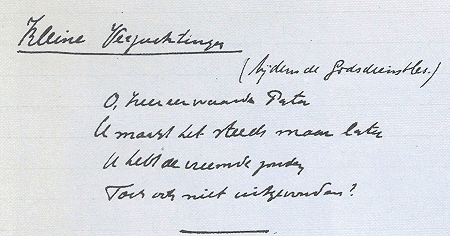 Kleine Verzuchtingen
(tijdens de Godsdienstles.)
O, Zeereerwaarde Pater
U maakt het steeds maar later
U hebt de vreemde zonden
Toch ook niet uitgevonden?